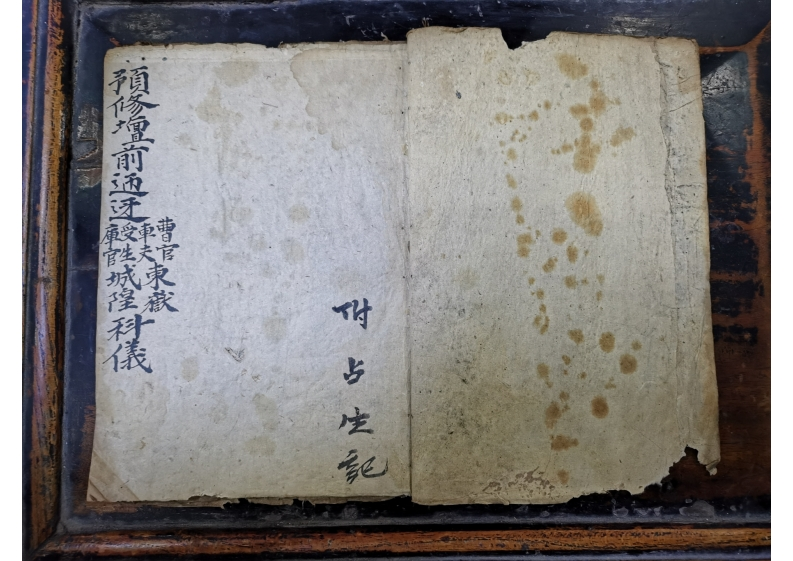 付占生記
預修壇前迊迓
曹官
車夫
受生
庫官
東嶽
城隍
科儀